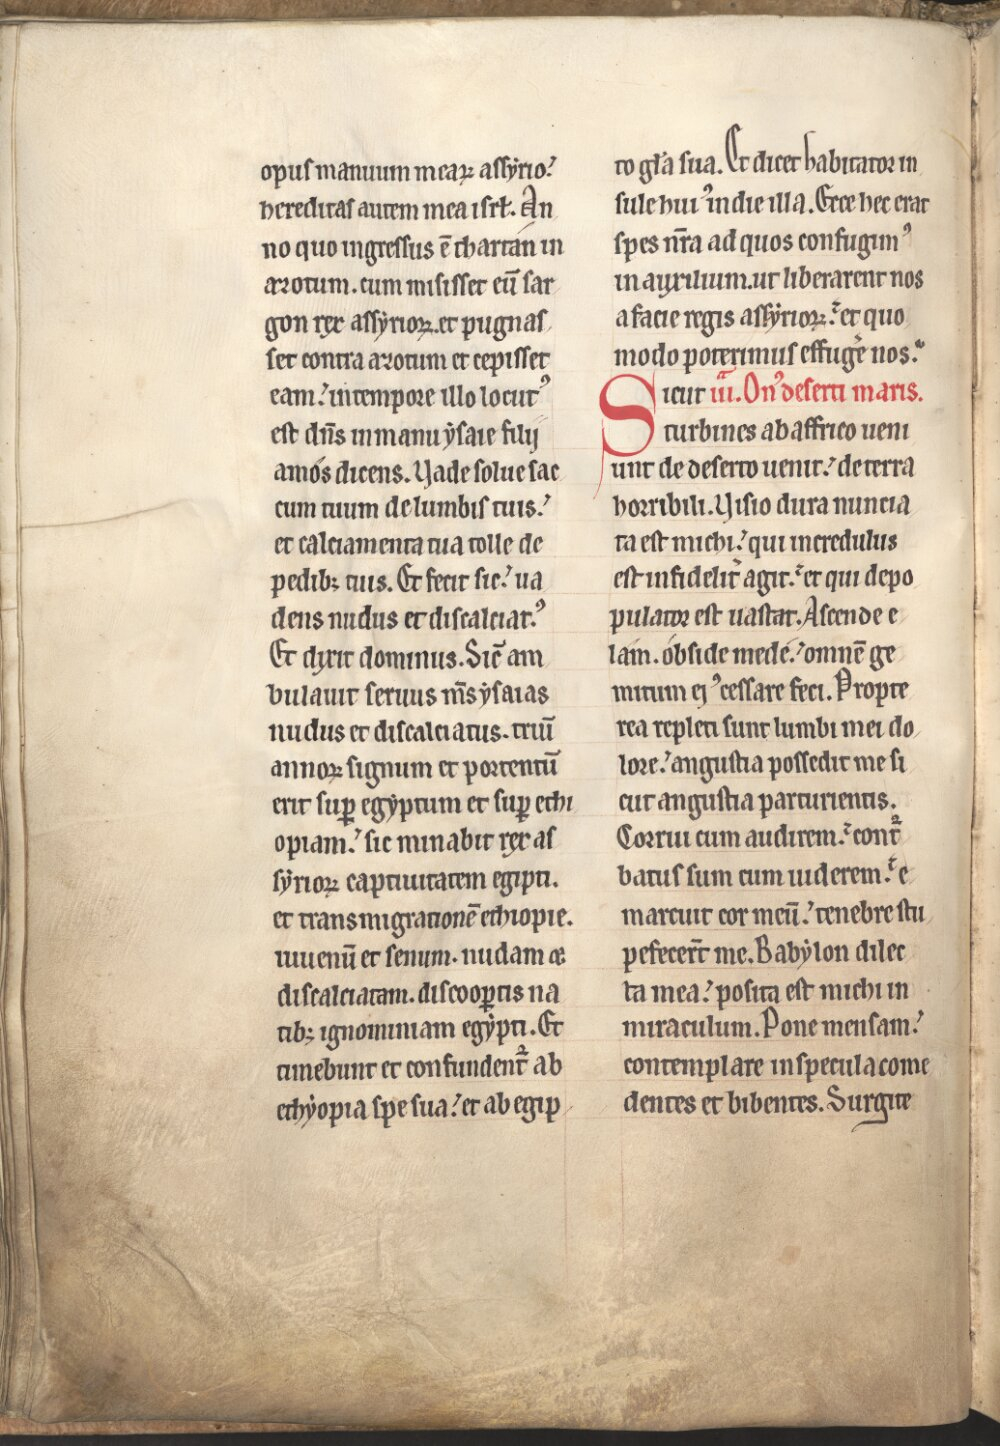 opus manuum meaꝝ assẏrio?
hereditas autem mea isrł. An
no quo ingressus ē thartán in
azotum. cum misisset eū sar
gon rex assẏrioꝝ. et pugnas
set contra azotum et cepisset
eam? in tempore illo locutꝰ
est dn̄s in manu ẏsaie filij
amós dicens. Vade solue sac
cum tuum de lumbis tuis?
et calciamenta tua tolle de
pedibꝫ tuis. Et fecit sic? ua
dens nudus et discalciat.ꝰ
Et dixit dominus. Sic̄ am
bulauit seruus ms̄ ẏsaias
nudus et discalciatus. triū
annoꝝ signum et portentū
erit suꝑ egẏptum et suꝑ ethi
opiam? sic minabit rex as
sẏrioꝝ captiuitatem egipti.
et transmigrationē ethiopie.
iuuenū et senum. nudam &
discalciatam. discooꝑtis na
tibꝫ ignominiam egẏpti. Et
timebunt et confundent᷑ ab
ethẏopia spe sua? et ab egip
to gl̄a sua. Et dicet habitator in
sule huiꝰ in die illa. Ecce hec erat
spes nr̄a ad quos confugimꝰ
in auxilium. ut liberarent nos
a facie regis assẏrioꝝ? et quo
modo poterimus effuge᷑ nos?
Sicut iii. Onꝰ deserti maris.
turbines ab affrico ueni
unt de deserto uenit? de terra
horribili. Visio dura nuncia
ta est michi? qui incredulus
est infidelit᷑ agit? et qui depo
pulator est uastat. Ascende e
lám. obside mede? omnē ge
mitum ejꝰ cessare feci. Propte
rea repleti sunt lumbi mei do
lore? angustia possedit me si
cut angustia parturientis.
Corrui cum audirem? cont᷑
batus sum cum uiderem? e
marcuit cor meū? tenebre stu
pefecert̄ me. Babẏlon dilec
ta mea? posita est michi in
miraculum. Pone mensam?
contemplare in specula come
dentes et bibentes. Surgite